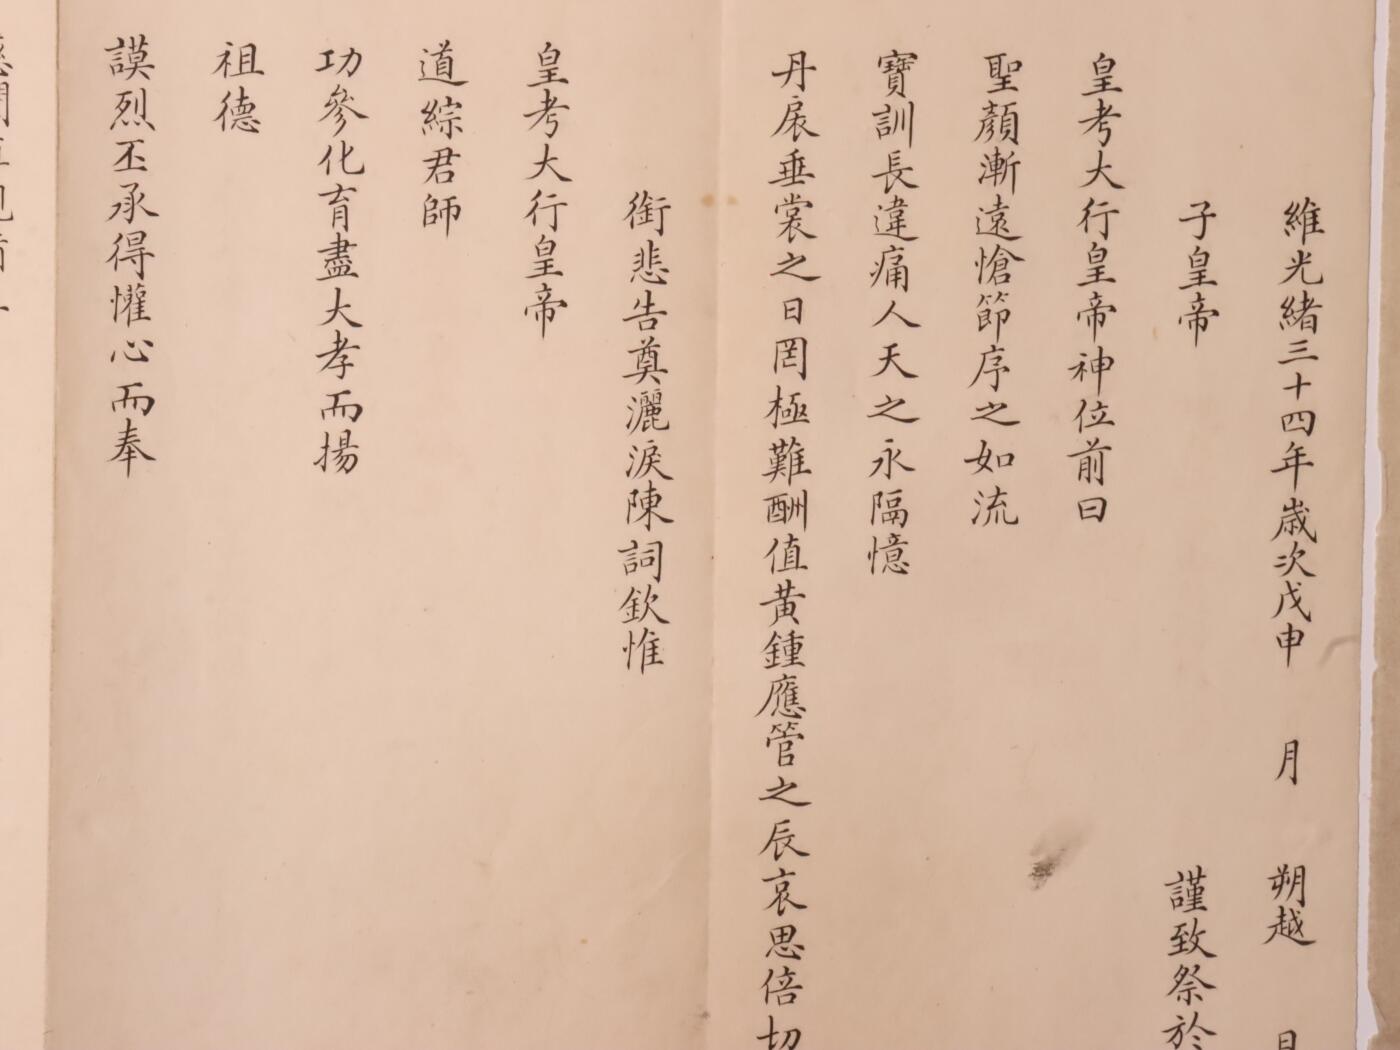 維光緒三十四年歲次戊申　月　朔越　日
子皇帝　謹致祭於
皇考大行皇帝神位前曰
聖顏漸遠愴節序之如流
寶訓長違痛人天之永隔憶
丹扆垂裳之日罔極難酬值黃鍾應管之辰哀思倍切
銜悲告奠灑淚陳詞欽惟
皇考大行皇帝
道綜君師
功參化育盡大孝而揚
祖德
謨烈丕承得懽心而奉